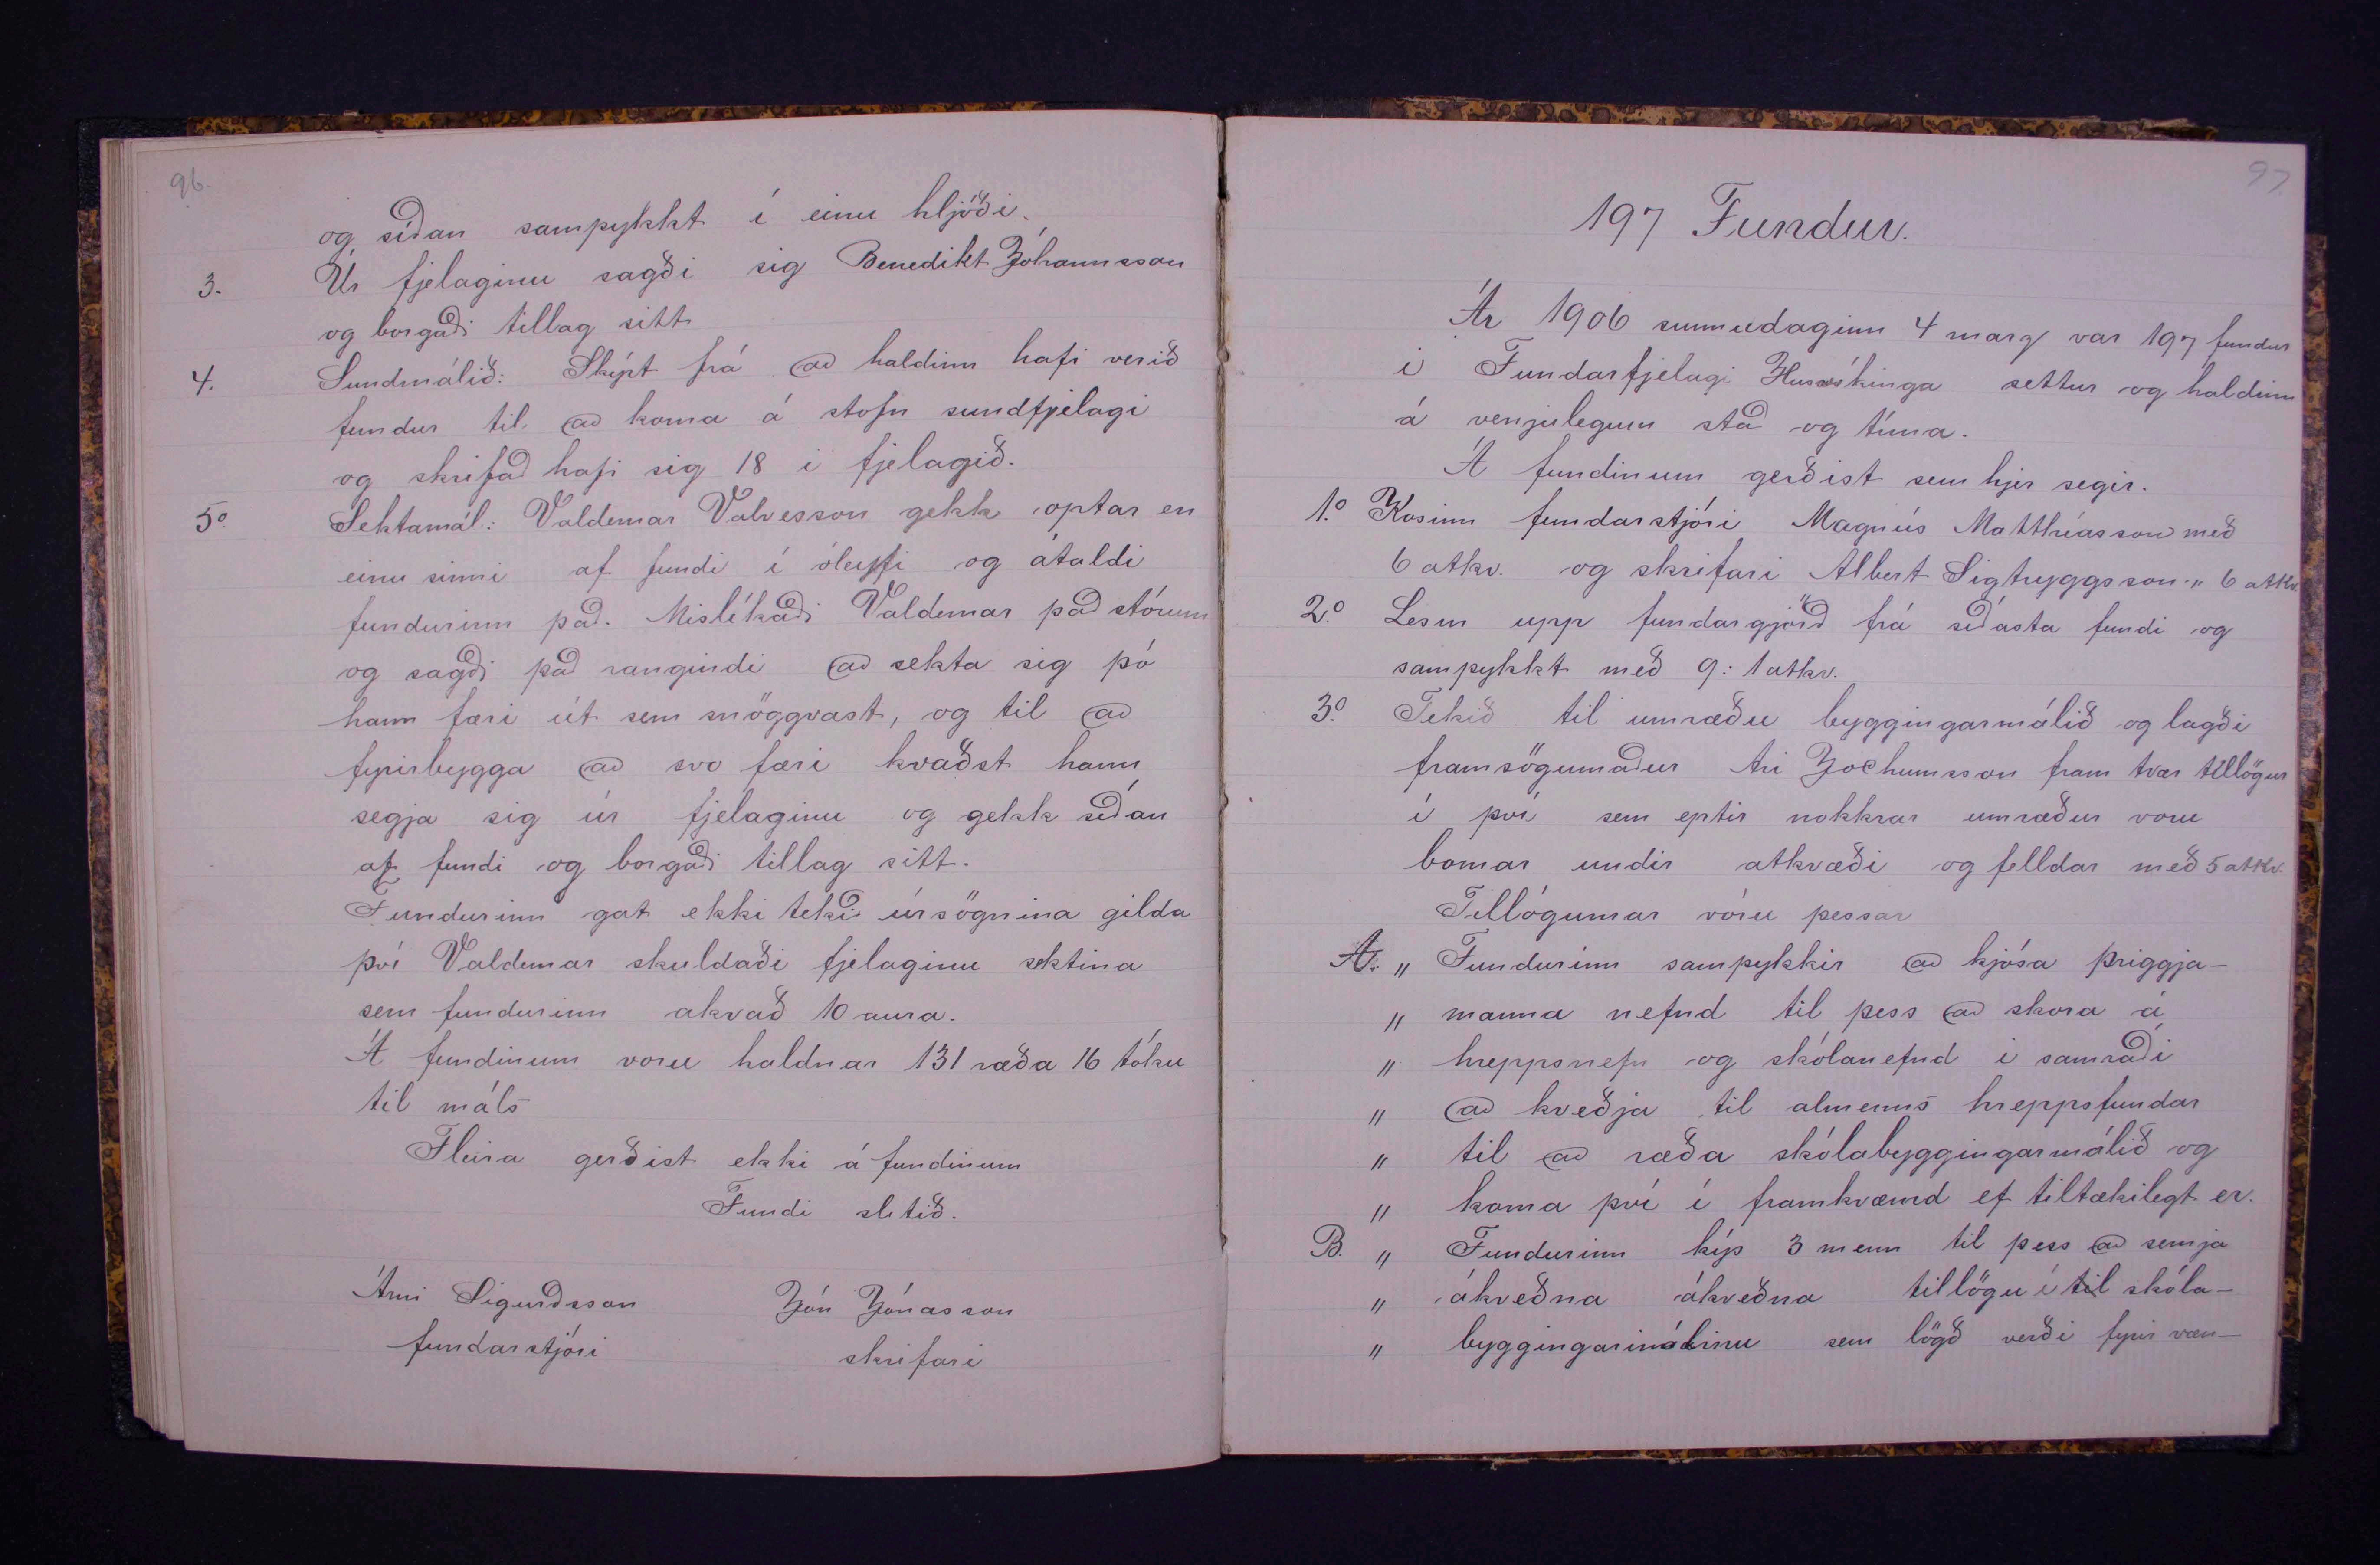 96.
og síðan samþykkt í einu hljóði.
3. Úr fjelaginu sagði sig Benedikt Jóhannsson
og borgaði tillag sitt
4. Sundmálið: Skýrt frá að haldinn hafi verið
fundur til að koma á stofn sundfjelagi
og skrifað hafi sig 18 i fjelagið.
5º Sektamál: Valdemar Valvesson gekk optar en
einu sinni af fundi í óleyfi og átaldi
fundurinn það. Mislíkaði Valdemar það stórum
og sagði það rangindi að sekta sig þó
hann færi út sem snöggvast, og til að
fyrirbygga að svo færi kvaðst hann
segja sig úr fjelaginu og gekk síðan
af fundi og borgaði tillag sitt.
Fundurinn gat ekki tekið úrsögnina gilda
því Valdemar skuldaði fjelaginu sektina
sem fundurinn akvað 10 aura.
Á fundinum voru haldnar 131 ræða 16 tóku
til máls
Fleira gerðist ekki á fundinum
Fundi slitið.
Árni Sigurðsson Jón Jónasson
fundarstjóri skrifari
97.
197 Fundur.
Ár 1906 sunnudaginn 4 marz var 197 fundur
i Fundarfjelagi Husvíkinga settur og haldinn
á venjulegum stað og tíma.
Á fundinum gerðist sem hjer segir.
1.º Kosinn fundarstjóri Magnús Matthíasson með
6 atkv. og skrifari Albert Sigtryggsson „ 6 atkv.
2.º Lesin upp fundargjörð frá síðasta fundi og
samþykkt með 9: 1 atkv.
3.º Tekið til umræðu byggingarmálið og lagði
framsögumaður Ari Jochumsson fram tvær tillögur
í því sem eptir nokkrar umræður voru
bornar undir atkvæði og felldar með 5 atkv.
Tillögurnar vóru þessar
A. „ Fundurinn samþykkir að kjósa þriggja-
„ manna nefnd til þess að skora á
„ hreppsnefn og skólanefnd i samráði
„ að kveðja til almenns hreppsfundar
„ til að ræða skólabyggingarmálið og
„ koma því í framkvæmd ef tiltækilegt er.
B. „ Fundurinn kýs 3 menn til þess að semja
„ ákveðna ákveðna tillögu í til skóla-
„ byggingarmálinu sem lögð verði fyrir væn-